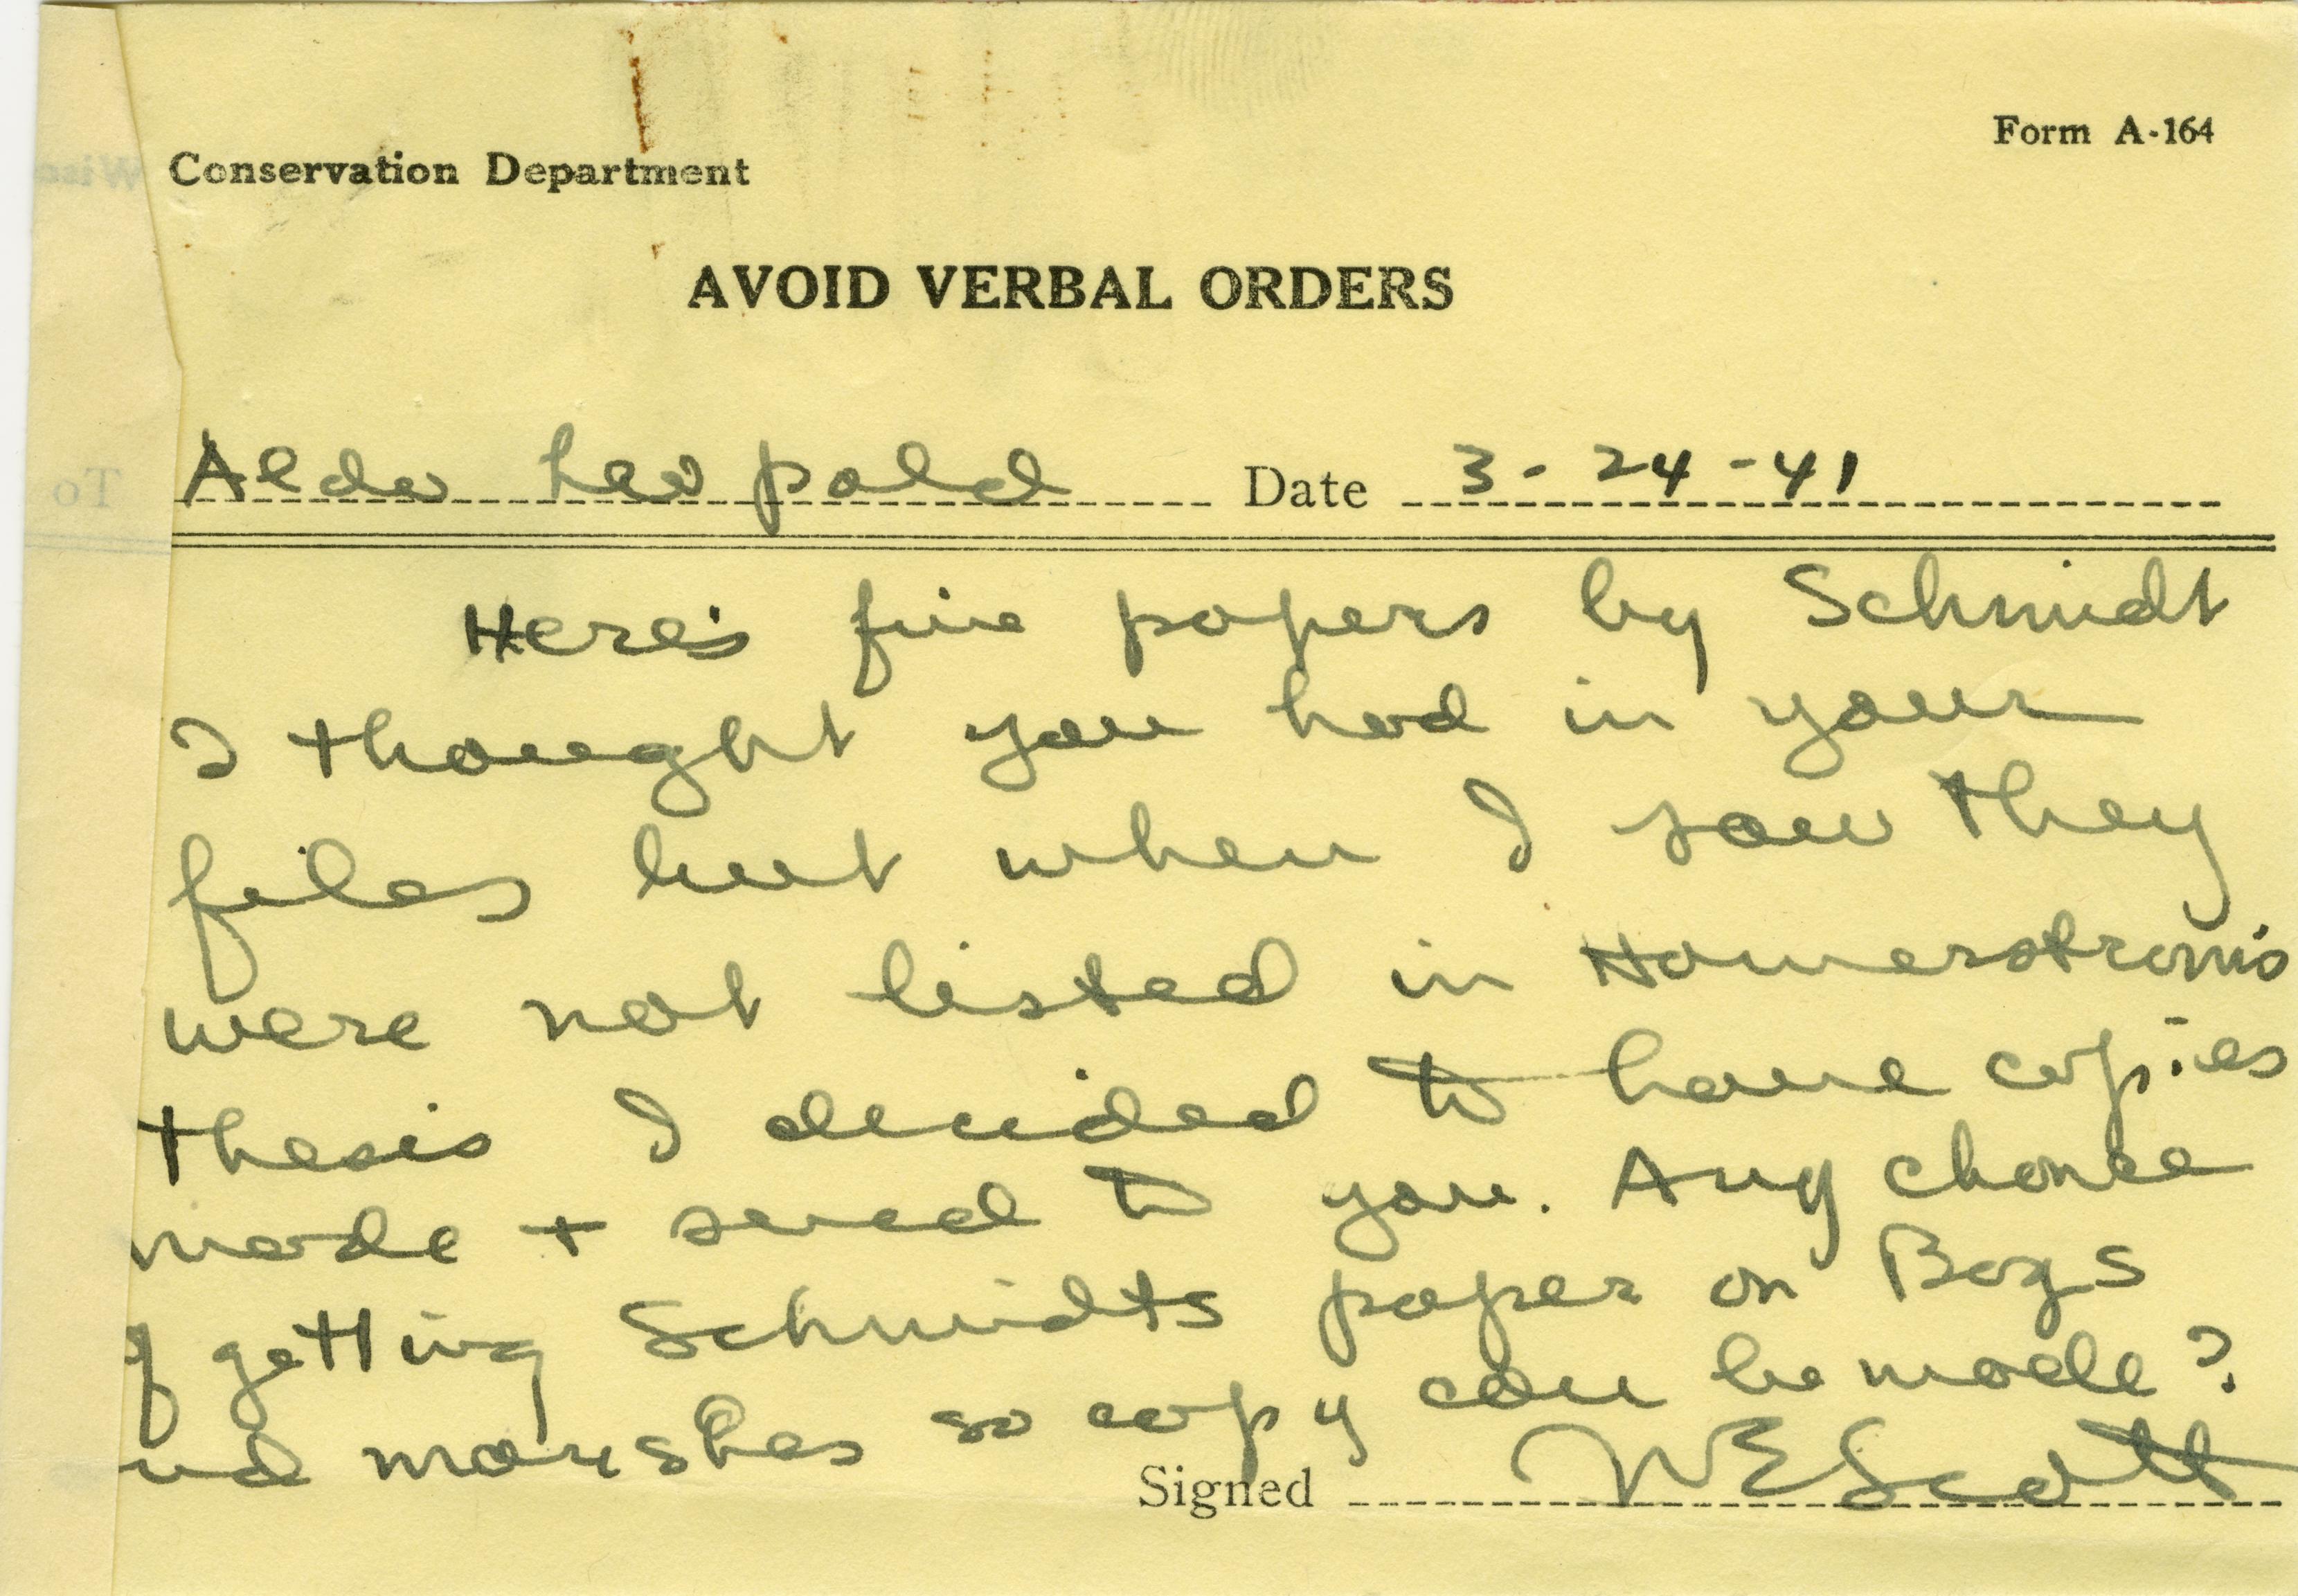 Form A-164
Conservation Department
AVOID VERBAL ORDERS
Aldo Leopold Date 3-24-41
Here's five papers by Schmidt
I thought you had in your
files but when I saw they
were not listed in Hamerstrom's
thesis I decided to have copies
made + send to you. Any chance
of getting Schmidts paper on Bogs
nd marshes so copy can be made?
Signed WEScott